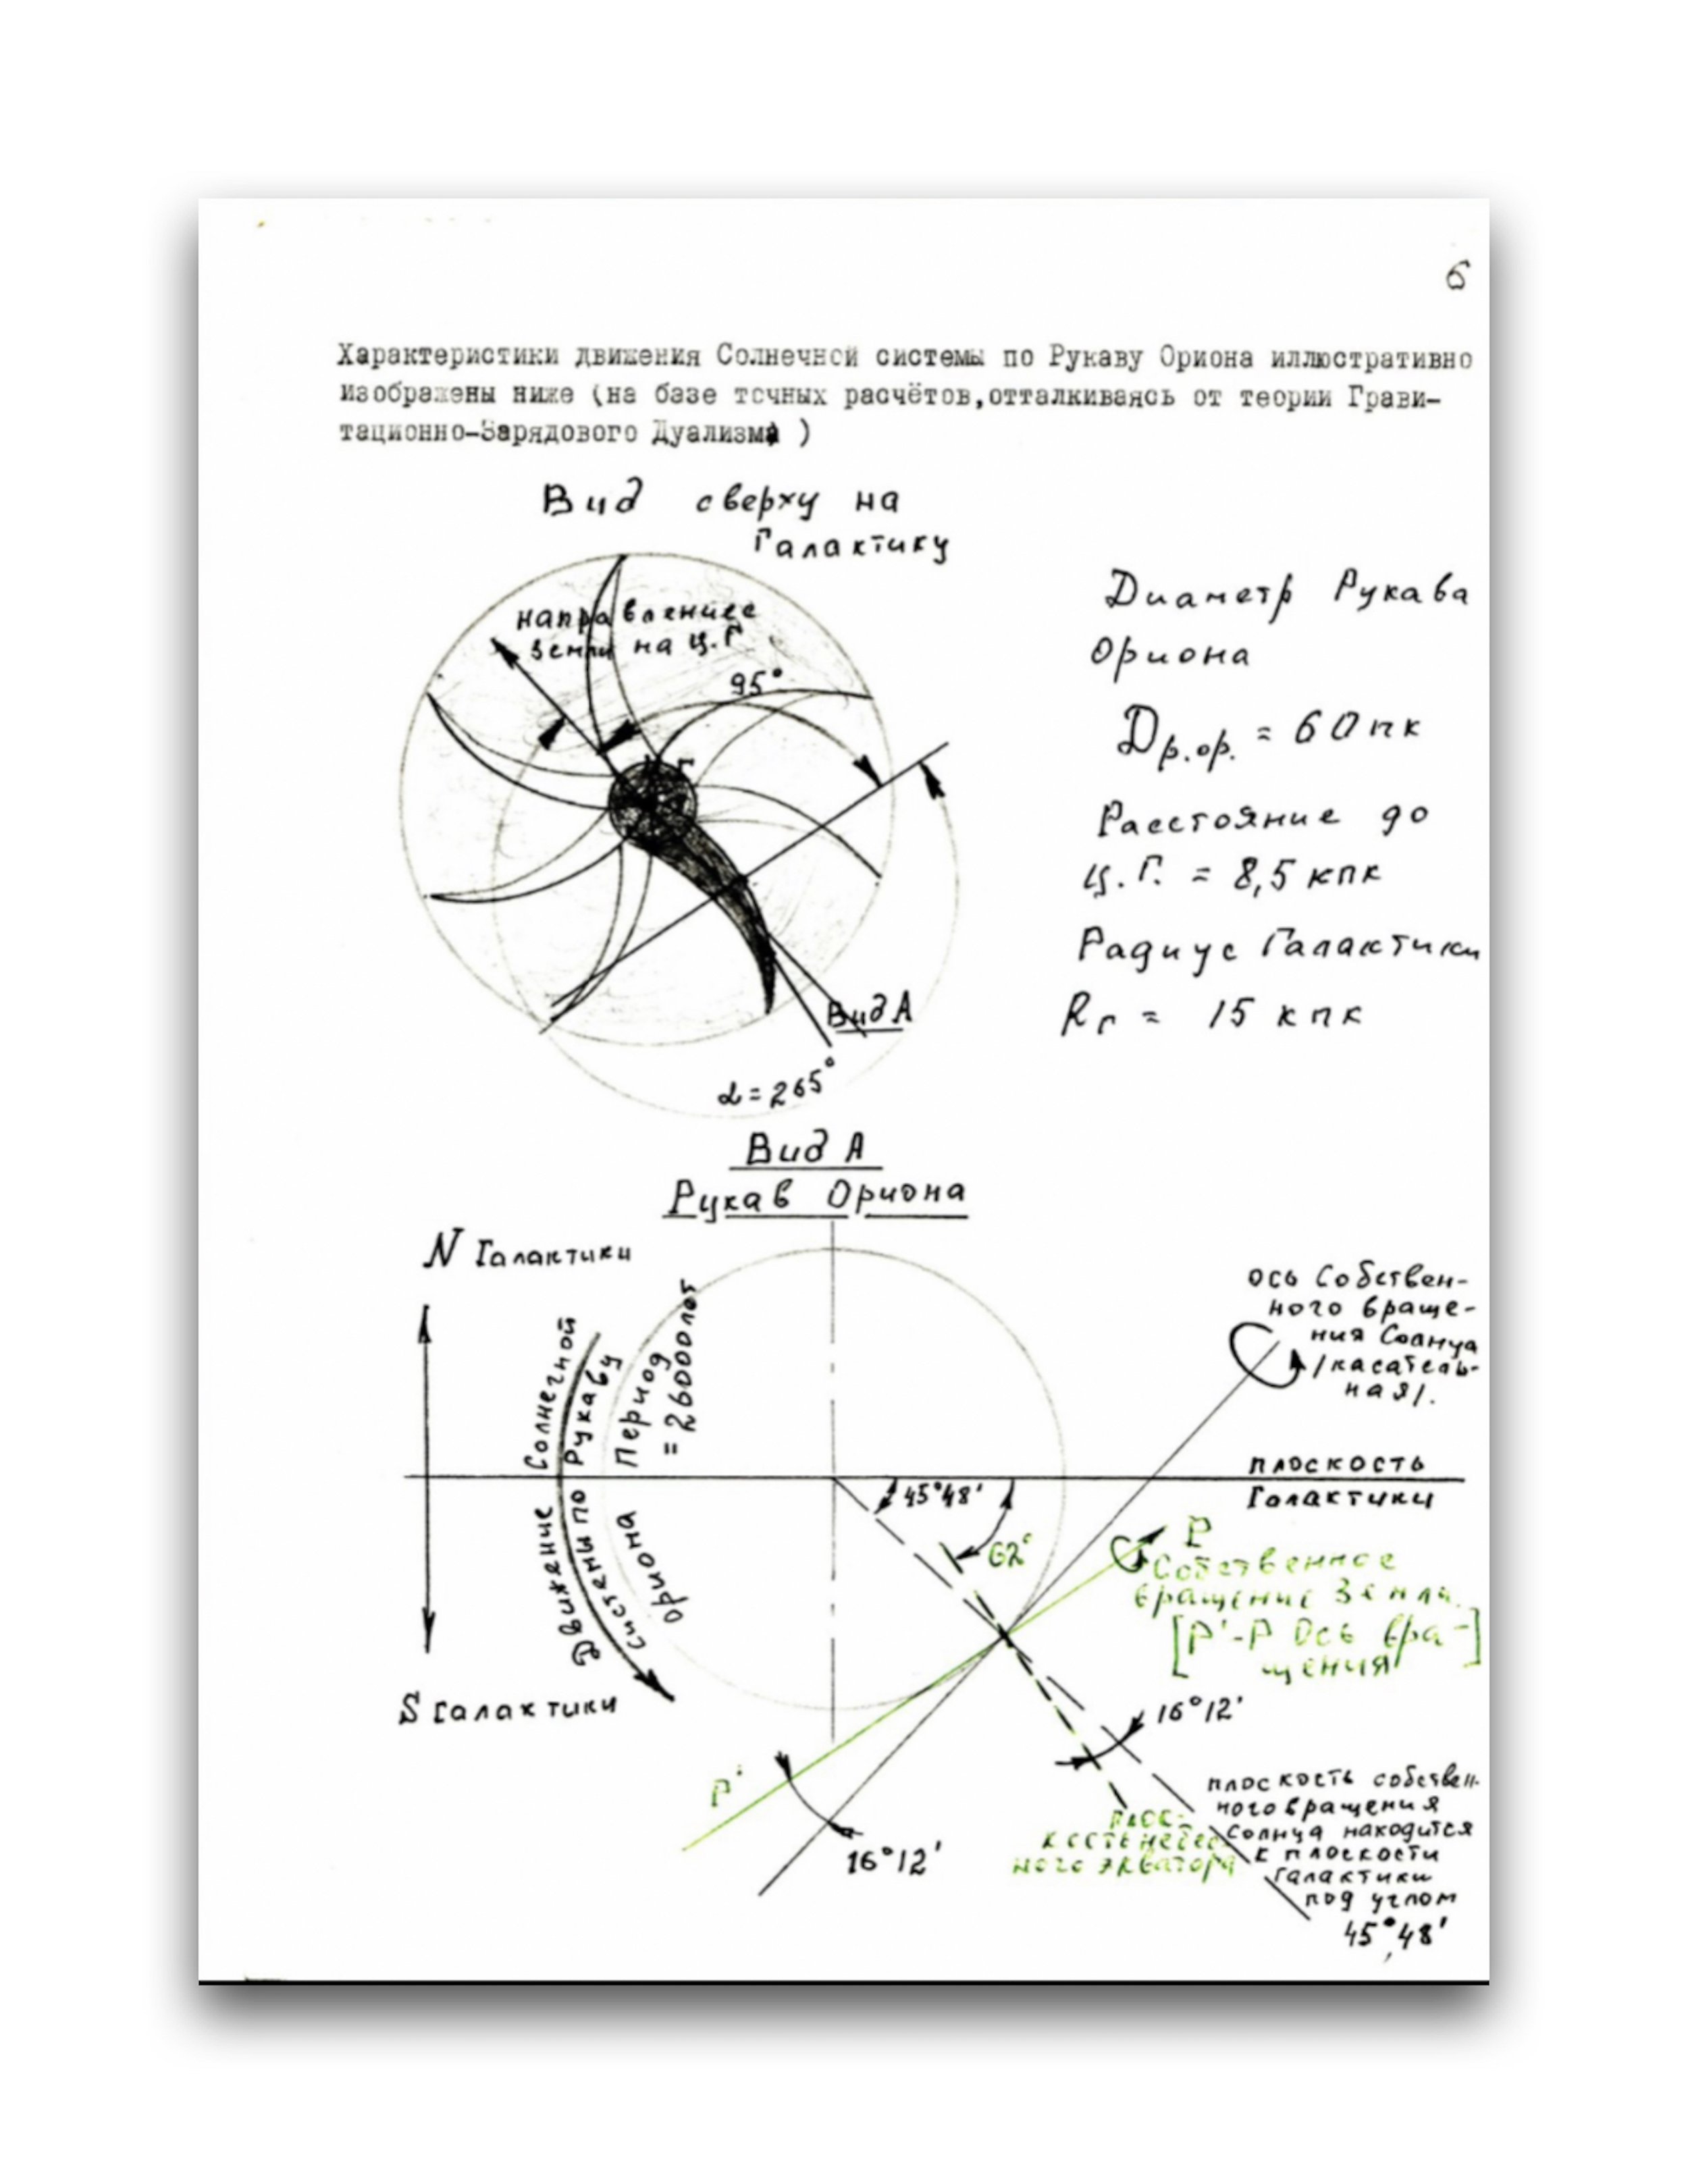 6
Характеристики движения Солнечной системы по Рукаву Ориона иллюстративно
изображены ниже (на базе точных расчётов,отталкиваясь от теории Грави-
тационно-Зарядового Дуализма )
Вид сверху на
Галактику
направление
Земли на ц.Г
95°
Вид А
α=265°
Диаметр Рукава
Ориона
Dр.ор. = 60пк
Расстояние до
Ц.Г. = 8,5 кпк
Радиус Галактики
Rг = 15 кпк
Вид А
Рукав Ориона
N Галактики
S Галактики
Движение Солнечной
системы по Рукаву
Ориона Период
= 26000лет
ось Собствен-
ного враще-
ния Солнца
/касатель-
ная/.
плоскость
Галактики
45°48'
62°
P
Собственное
вращение Земли.
[P'-P Ось вра-
щения]
16°12'
P'
16°12'
плос-
кость небес-
ного экватора
плоскость собствен-
ного вращения
Солнца находится
к плоскости
Галактики
под углом
45°48'